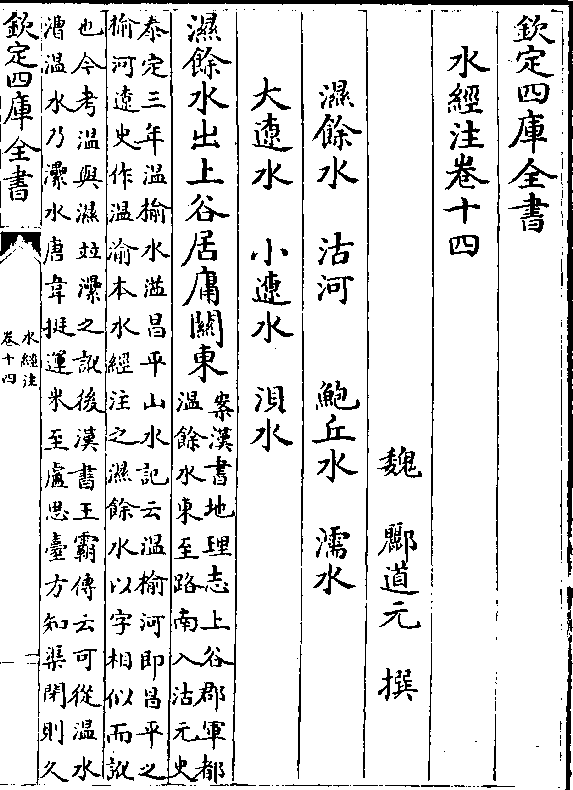 欽定四庫全書
水經注卷十四
魏 酈道元 撰
濕餘水 沽河 鮑丘水 濡水
大遼水 小遼水 浿水
濕餘水出上谷居庸關東
案漢書地理志上谷郡軍都
溫餘水東至路南入沽元史
泰定三年溫榆水溢昌平山水記云溫榆河即昌平之
榆河遼史作溫渝本水經注之濕餘水以字相似而訛
也今考溫與濕並㶟之訛後漢書王霸傳云可從溫水
漕溫水乃㶟水唐韋挺運米至盧思臺方知渠閉則久
欽定四庫全書
水經注
卷十四
一